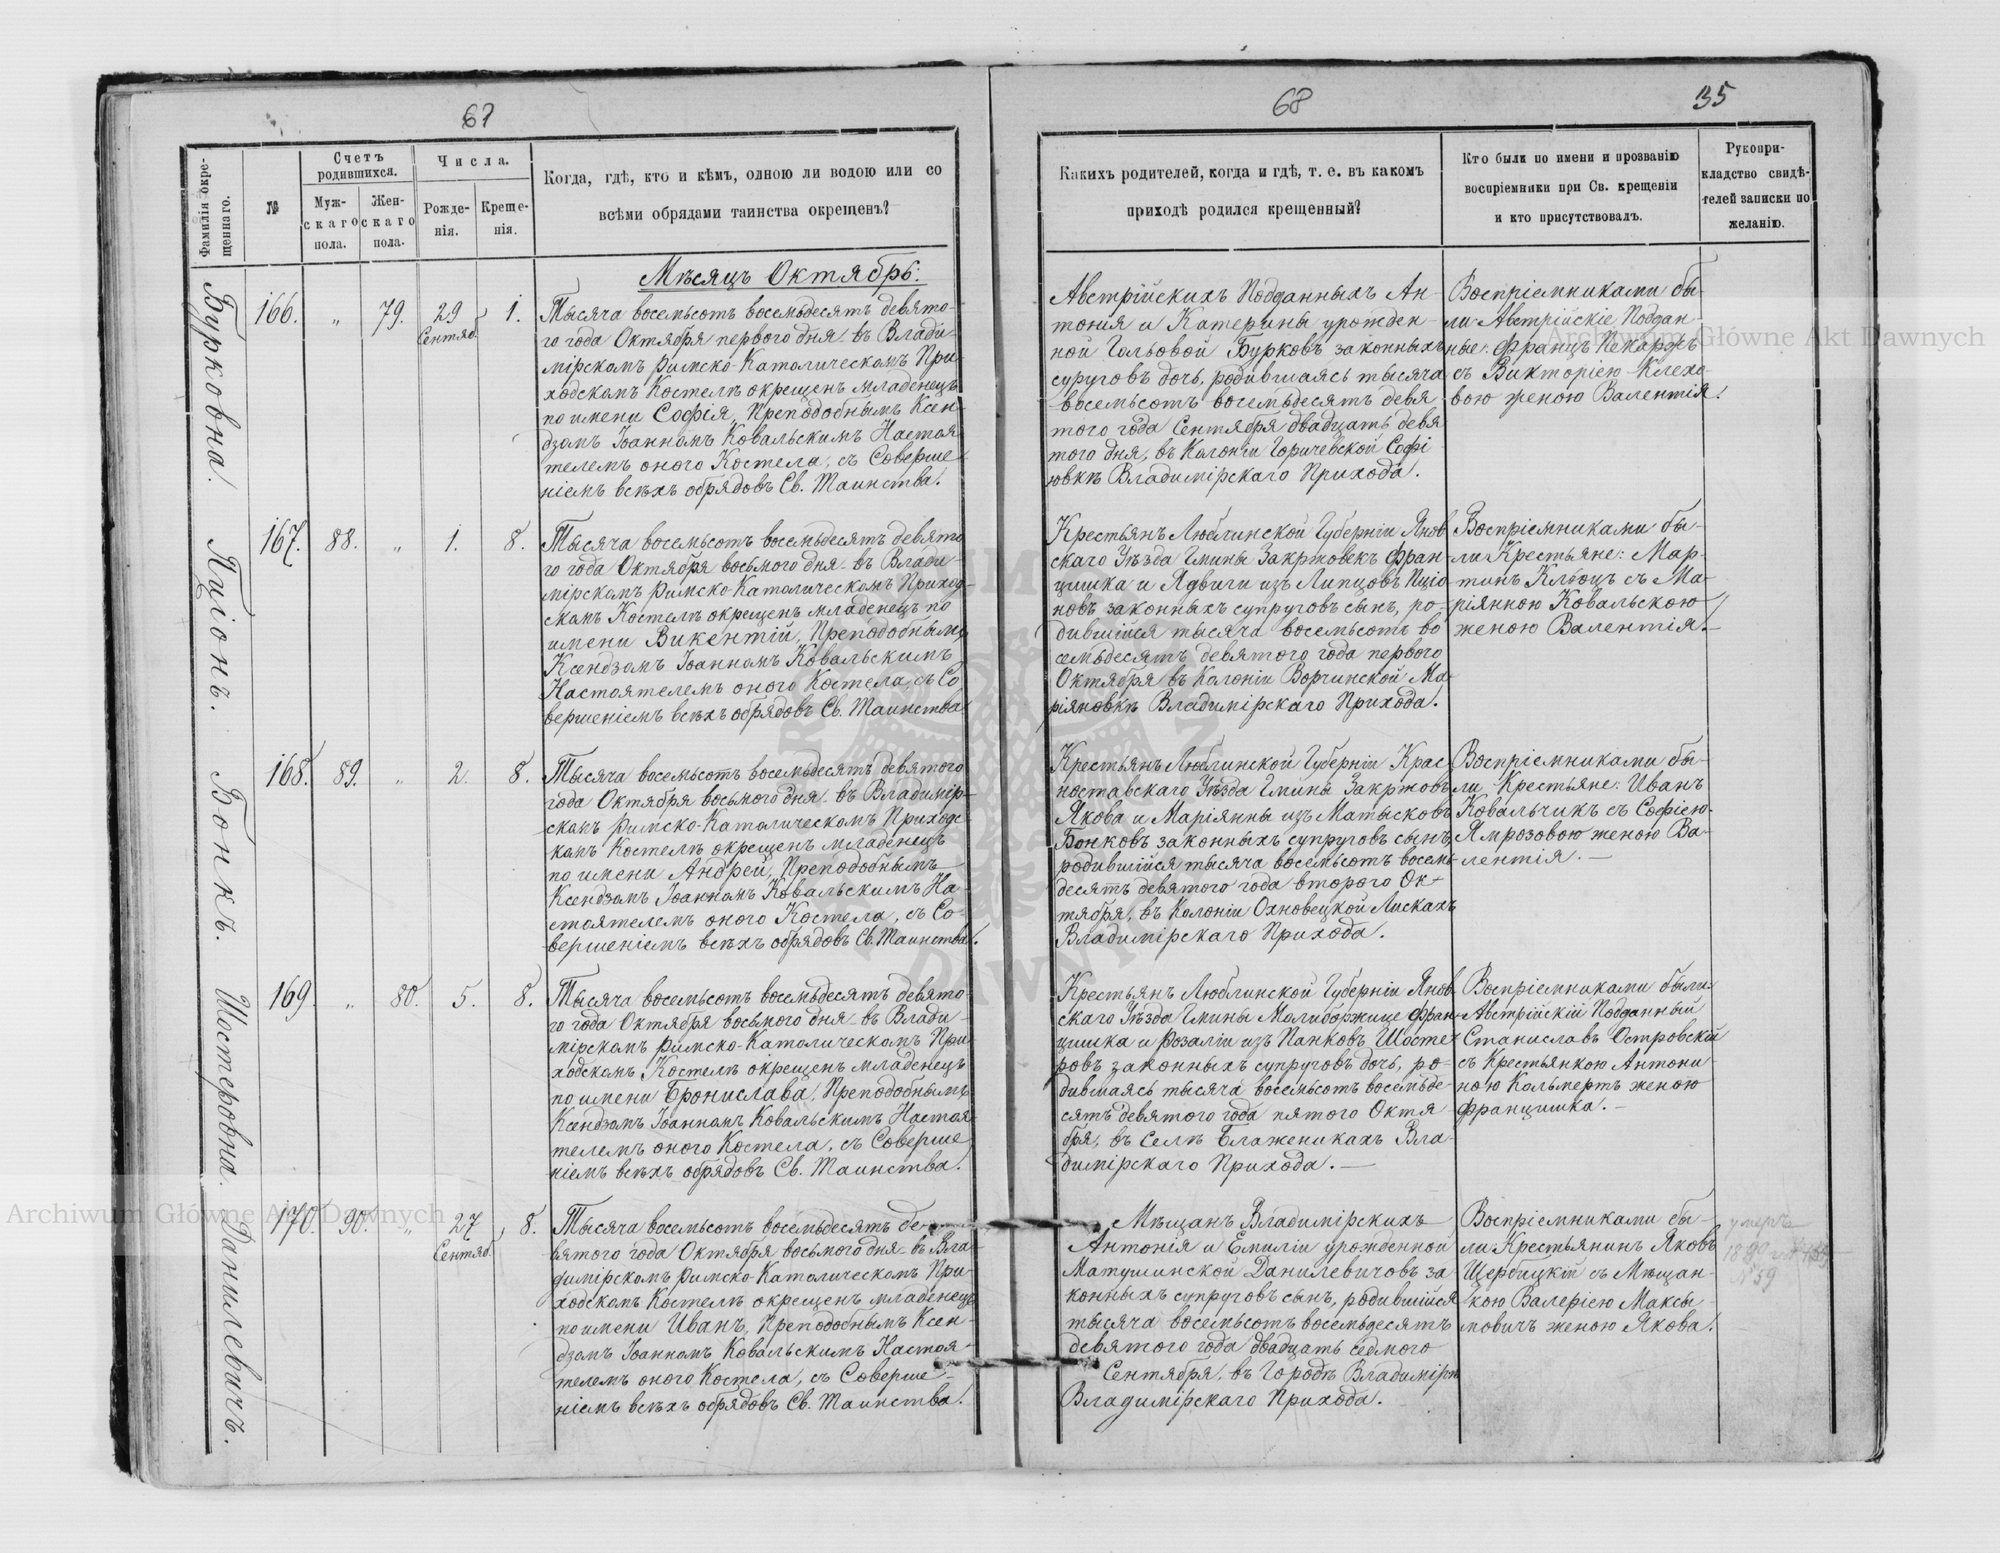 67
Фамилія окре-
щеннаго.
№
Счетъ
родившихся.
Муж-
скаго
пола.
Жен-
скаго
пола.
Числа.
Рожде-
нія.
Креще-
нія.
Когда, гдѣ, кто и кѣмъ, одною ли водою или со
всѣми обрядами таинства окрещенъ?
Мѣсяцъ Октябрь:
Бурковна.
166.
"
79.
29
Сентяб.
1.
Тысяча восемьсотъ восемьдесятъ девято-
го года Октября перваго дня въ Влади-
мірскомъ Римско-Католическомъ При-
ходскомъ Костелѣ окрещенъ младенецъ
по имени Софія, Преподобнымъ Ксен-
дзомъ Іоанномъ Ковальскимъ Настоя
телемъ оного Костела, съ Соверше
ніемъ всѣхъ обрядовъ Св. Таинства.
Пціонъ.
167.
88.
"
1.
8.
Тысяча восемьсотъ восемьдесятъ девято
го года Октября восьмого дня въ Влади-
мірскомъ Римско-Католическомъ Приход-
скомъ Костелѣ окрещенъ младенецъ по
имени Викентій, Преподобнымъ
Ксендзомъ Іоанномъ Ковальскимъ
Настоятелемъ оного Костела, съ Со
вершеніемъ всѣхъ обрядовъ Св. Таинства
Бонкъ.
168.
89.
"
2.
8.
Тысяча восемьсотъ восемьдесятъ девятого
года Октября восьмого дня въ Владимір-
скомъ Римско-Католическомъ Приходс-
комъ Костелѣ окрещенъ младенецъ
по имени Андрей, Преподобнымъ
Ксендзомъ Іоанномъ Ковальскимъ На-
стоятелемъ оного Костела, съ Со-
вершеніемъ всѣхъ обрядовъ Св. Таинства.
Шостеровна.
169.
"
80.
5.
8.
Тысяча восемьсотъ восемьдесятъ девято-
го года Октября восьмого дня въ Влади-
мірскомъ Римско-Католическомъ При
ходскомъ Костелѣ окрещенъ младенецъ
по имени Бронислава, Преподобнымъ
Ксендзомъ Іоанномъ Ковальскимъ Настоя
телемъ оного Костела, съ Соверше
ніемъ всѣхъ обрядовъ Св. Таинства.
Данилевичъ.
170.
90.
"
27
Сентяб.
8.
Тысяча восемьсотъ восемьдесятъ де-
вятого года Октября восьмого дня въ Вла
димірскомъ Римско-Католическомъ При-
ходскомъ Костелѣ окрещенъ младенецъ
по имени Иванъ, Преподобнымъ Ксен-
дзомъ Іоанномъ Ковальскимъ Настоя-
телемъ оного Костела, съ Соверше-
ніемъ всѣхъ обрядовъ Св. Таинства.
68
35
Какихъ родителей, когда и гдѣ, т. е. въ какомъ
приходѣ родился крещенный?
Кто были по имени и прозванію
воспріемники при Св. крещеніи
и кто присутствовалъ.
Рукопри-
кладство свидѣ-
телей записки по
желанію.
Австрійскихъ Подданныхъ Ан-
тонія и Катерины урожден-
ной Гольовой Бурковъ законныхъ
супруговъ дочь, родившаясь тысяча
восемьсотъ восемьдесятъ девя
того года Сентября двадцать девя
того дня, въ Колоніи Горичевской Софі
ювкѣ Владимірскаго Прихода.
Воспріемниками бы-
ли Австрійскіе Поддан-
ные: Францъ Пекаржъ
съ Викторіею Клехо-
вою женою Валентія.
Крестьянъ Люблинской Губерніи Янов
скаго Уѣзда Гмины Закржовекъ Фран-
цишка и Ядвиги изъ Липцовъ Пціо
новъ законныхъ супруговъ сынъ, ро-
дившійся тысяча восемьсотъ во
семьдесятъ девятого года первого
Октября въ Колоніи Ворчинской Ма-
ріяновкѣ Владимірскаго Прихода.
Воспріемниками бы-
ли Крестьяне: Мар-
тинъ Клюцъ съ Ма-
ріянною Ковальскою
женою Валентія.
Крестьянъ Люблинской Губерніи Крас
ноставскаго Уѣзда Гмины Закржовъ
Якова и Маріянны изъ Матысковъ
Бонковъ законныхъ супруговъ сынъ,
родившійся тысяча восемьсотъ восемь
десятъ девятого года второго Ок-
тября, въ Колоніи Охновецкой Лискахъ
Владимірскаго Прихода.
Воспріемниками бы-
ли Крестьяне: Иванъ
Ковальчикъ съ Софіею
Ямрозовою женою Ва-
лентія.
Крестьянъ Люблинской Губерніи Янов
скаго Уѣзда Гмины Молиборжице Фран
цишка и Розаліи изъ Панковъ Шосте
ровъ законныхъ супруговъ дочь, ро-
дившаясь тысяча восемьсотъ восемьде-
сятъ девятого года пятого Октя
бря, въ Селѣ Блаженикахъ Вла-
димірскаго Прихода.
Воспріемниками были:
Австрійскій Подданный
Станиславъ Островскій
съ Крестьянкою Антони
ною Кольмертъ женою
Францишка.
Мѣщанъ Владимірскихъ
Антонія и Емиліи урожденной
Матушинской Данилевичовъ за
конныхъ супруговъ сынъ, родившійся
тысяча восемьсотъ восемьдесятъ
девятого года двадцать седмого
Сентября, въ Городѣ Владимірѣ
Владимірскаго Прихода.
Воспріемниками бы-
ли Крестьянинъ Яковъ
Щербицкій съ Мѣщан-
кою Валеріею Максы-
мовичъ женою Якова.
умеръ
№ 59
Archiwum Główne Akt Dawnych
Archiwum Główne Akt Dawnych